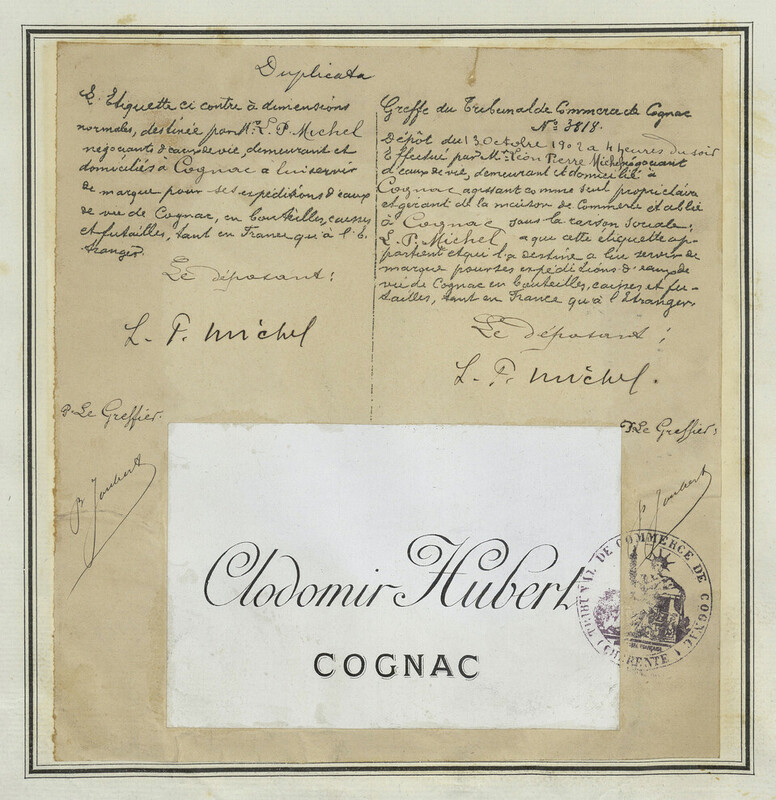 Duplicata
L'Etiquette ci contre à dimensions
normales, destinée par Mr. L. P. Michel
négociants d'eaux de vie, demeurant et
domiciliés à Cognac a lui servir
de marque pour ses expéditions d'eaux
de vie de Cognac, en bouteilles, caisses
et futailles, tant en France qu'à l'E-
tranger.
Le déposant:
L. P. Michel
P. Le Greffier.
P. Joubert
Greffe du Tribunal de Commerce de Cognac
No. 3818.
Dépôt du 13 Octobre 1902 a 4 heures du soir
Effectué par Mr. Léon Pierre Michel négociant
d'eaux de vie, demeurant et domicilié à
Cognac agissant comme seul propriétaire
et gérant de la maison de Commerce établie
à Cognac sous la raison sociale:
L. P. Michel a que cette etiquette ap-
partient et qu'il a destine a lui servir de
marque pour ses expéditions d'eaux de
vie de Cognac en bouteilles, caisses et fu-
tailles, tant en France qu'à l'Etranger
Le déposant:
L. P. Michel.
P. Le Greffier:
P. Joubert
Clodomir Hubert
COGNAC
TRIBUNAL DE COMMERCE DE COGNAC
(CHARENTE)